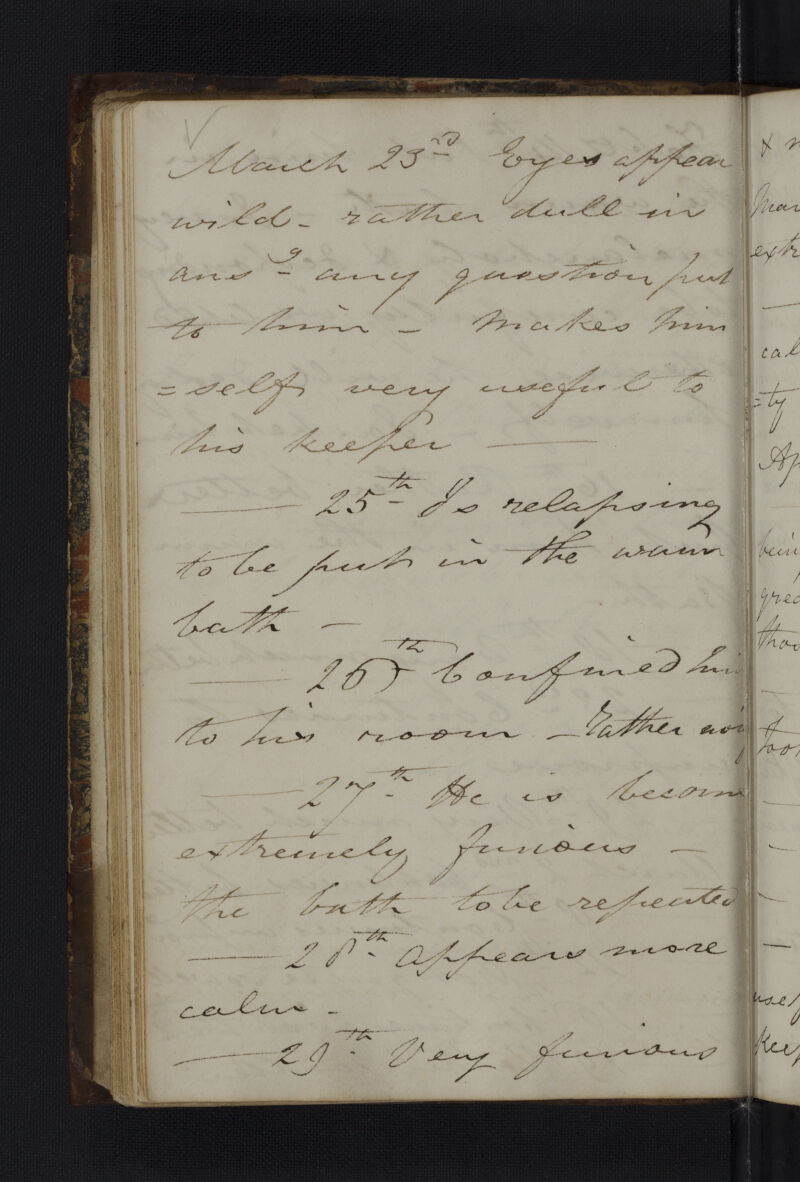 March 23rd Eyes appear
wild - rather dull in
ansg any question put
to him - makes him
=self very useful to
his keeper —
— 25th Is relapsing
to be put in the warm
bath -
— 26th Confined him
to his room - rather noi
— 27th He is become
extremely furious -
the bath to be repeated
— 28th appears more
calm -
— 29th Very furious
& n
Mar
extr
—
cal
=ty
Ap
bein
grea
thos
too
usef
keep